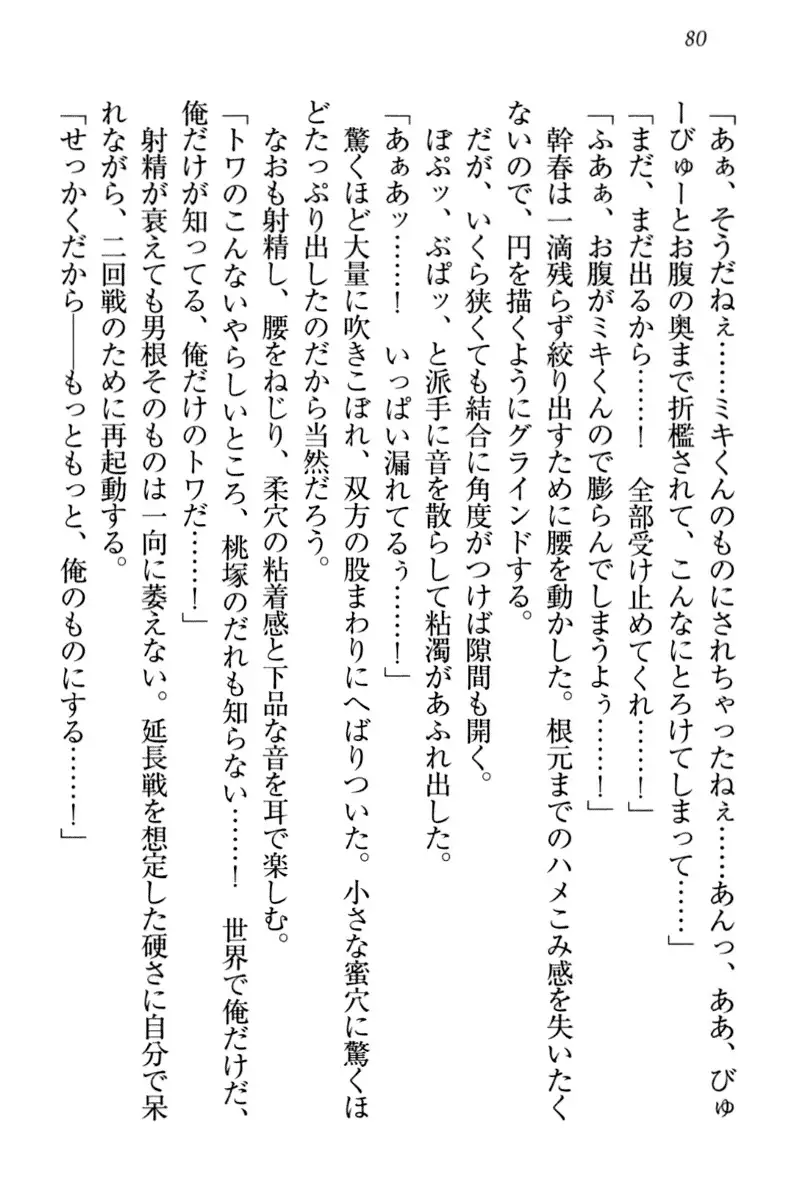 80
「あぁ、そうだねぇ……ミキくんのものにされちゃったねぇ……あんっ、ああ、びゅ
ーびゅーとお腹の奥まで折檻されて、こんなにとろけてしまって……」
「まだ、まだ出るから……！　全部受け止めてくれ……！」
「ふあぁ、お腹がミキくんので膨らんでしまうよぅ……！」
　幹春は一滴残らず絞り出すために腰を動かした。根元までのハメこみ感を失いたく
ないので、円を描くようにグラインドする。
　だが、いくら狭くても結合に角度がつけば隙間も開く。
　ぽぷッ、ぶぱッ、と派手に音を散らして粘濁があふれ出した。
「あぁあッ……！　いっぱい漏れてるぅ……！」
　驚くほど大量に吹きこぼれ、双方の股まわりにへばりついた。小さな蜜穴に驚くほ
どたっぷり出したのだから当然だろう。
　なおも射精し、腰をねじり、柔穴の粘着感と下品な音を耳で楽しむ。
「トワのこんないやらしいところ、桃塚のだれも知らない……！　世界で俺だけだ、
俺だけが知ってる、俺だけのトワだ……！」
　射精が衰えても男根そのものは一向に萎えない。延長戦を想定した硬さに自分で呆
れながら、二回戦のために再起動する。
「せっかくだから――もっともっと、俺のものにする……！」